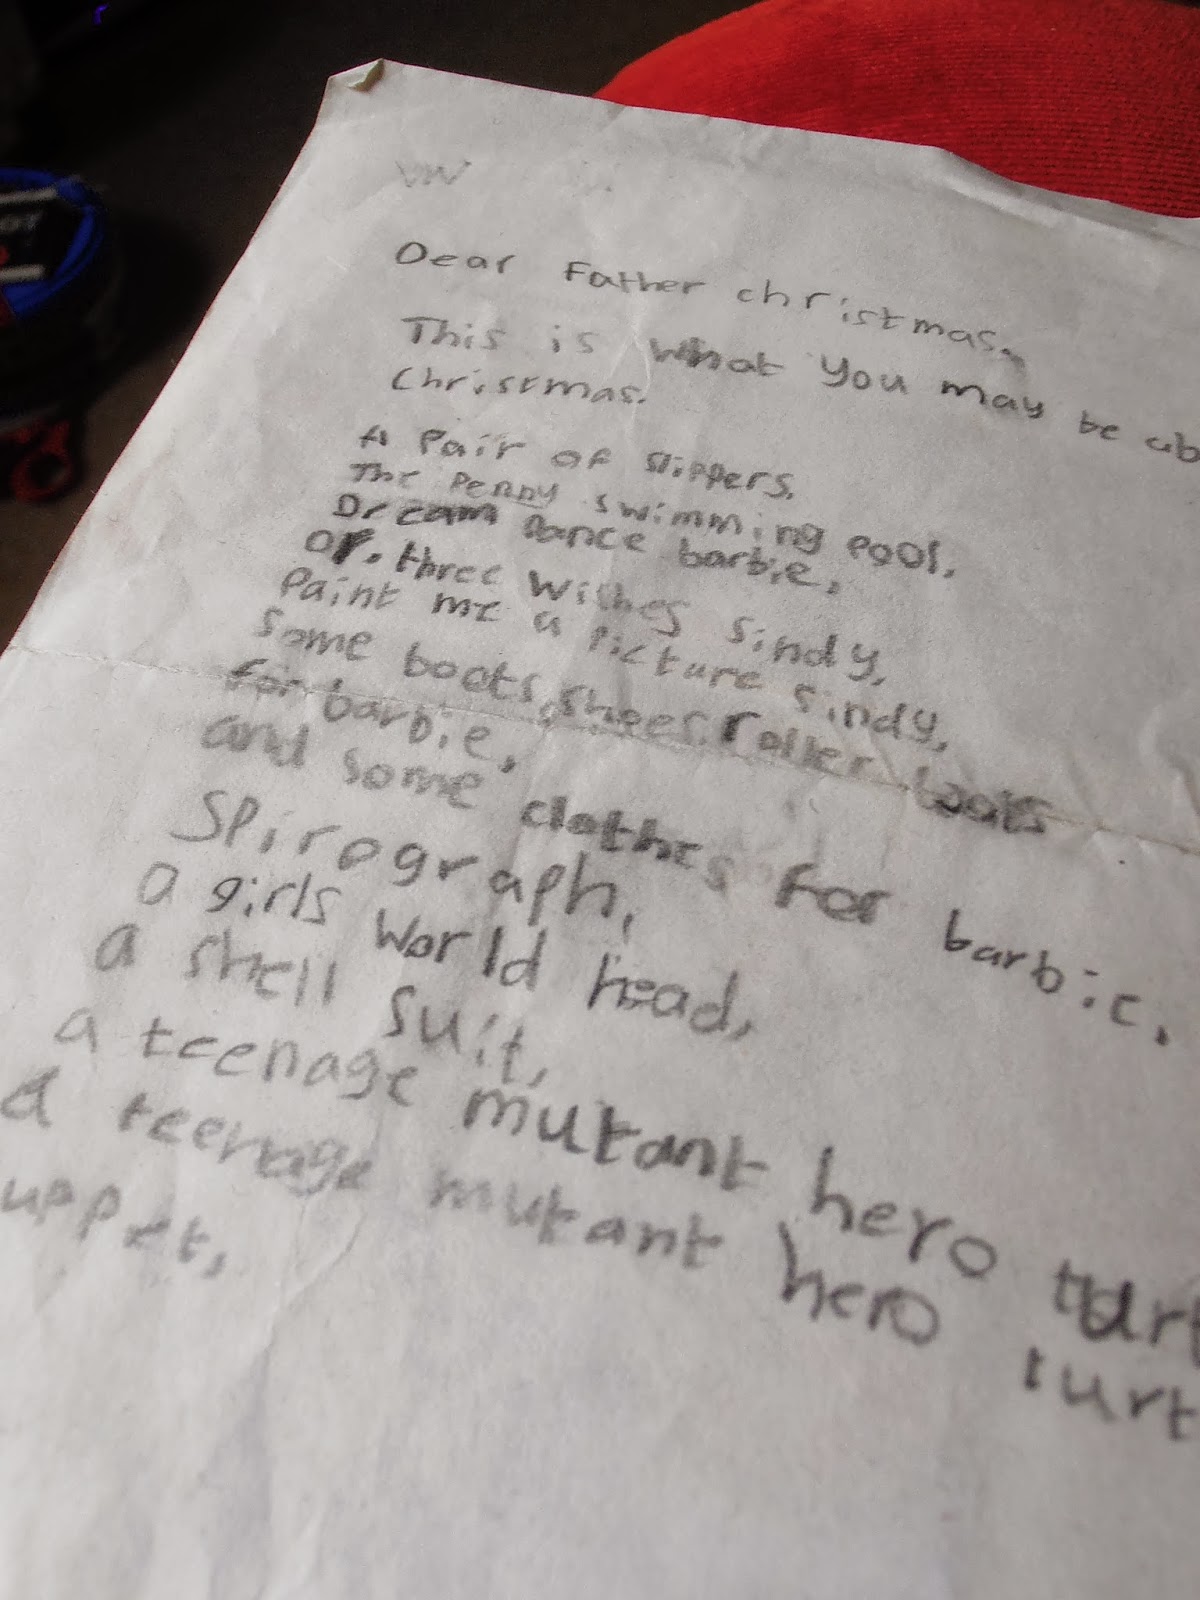 Dear Father christmas.
This is what You may be ab
Christmas.
A Pair of slippers.
The Penny swimming pool.
Dream Dance barbie,
or. three Wishes Sindy,
Paint me a Picture sindy,
Some boots, shoes, roller boots
for barbie,
and some clothes for barbie.
Spirograph,
a girls World head,
a shell suit,
a teenage mutant hero turt
a teenage mutant hero turt
uppet,